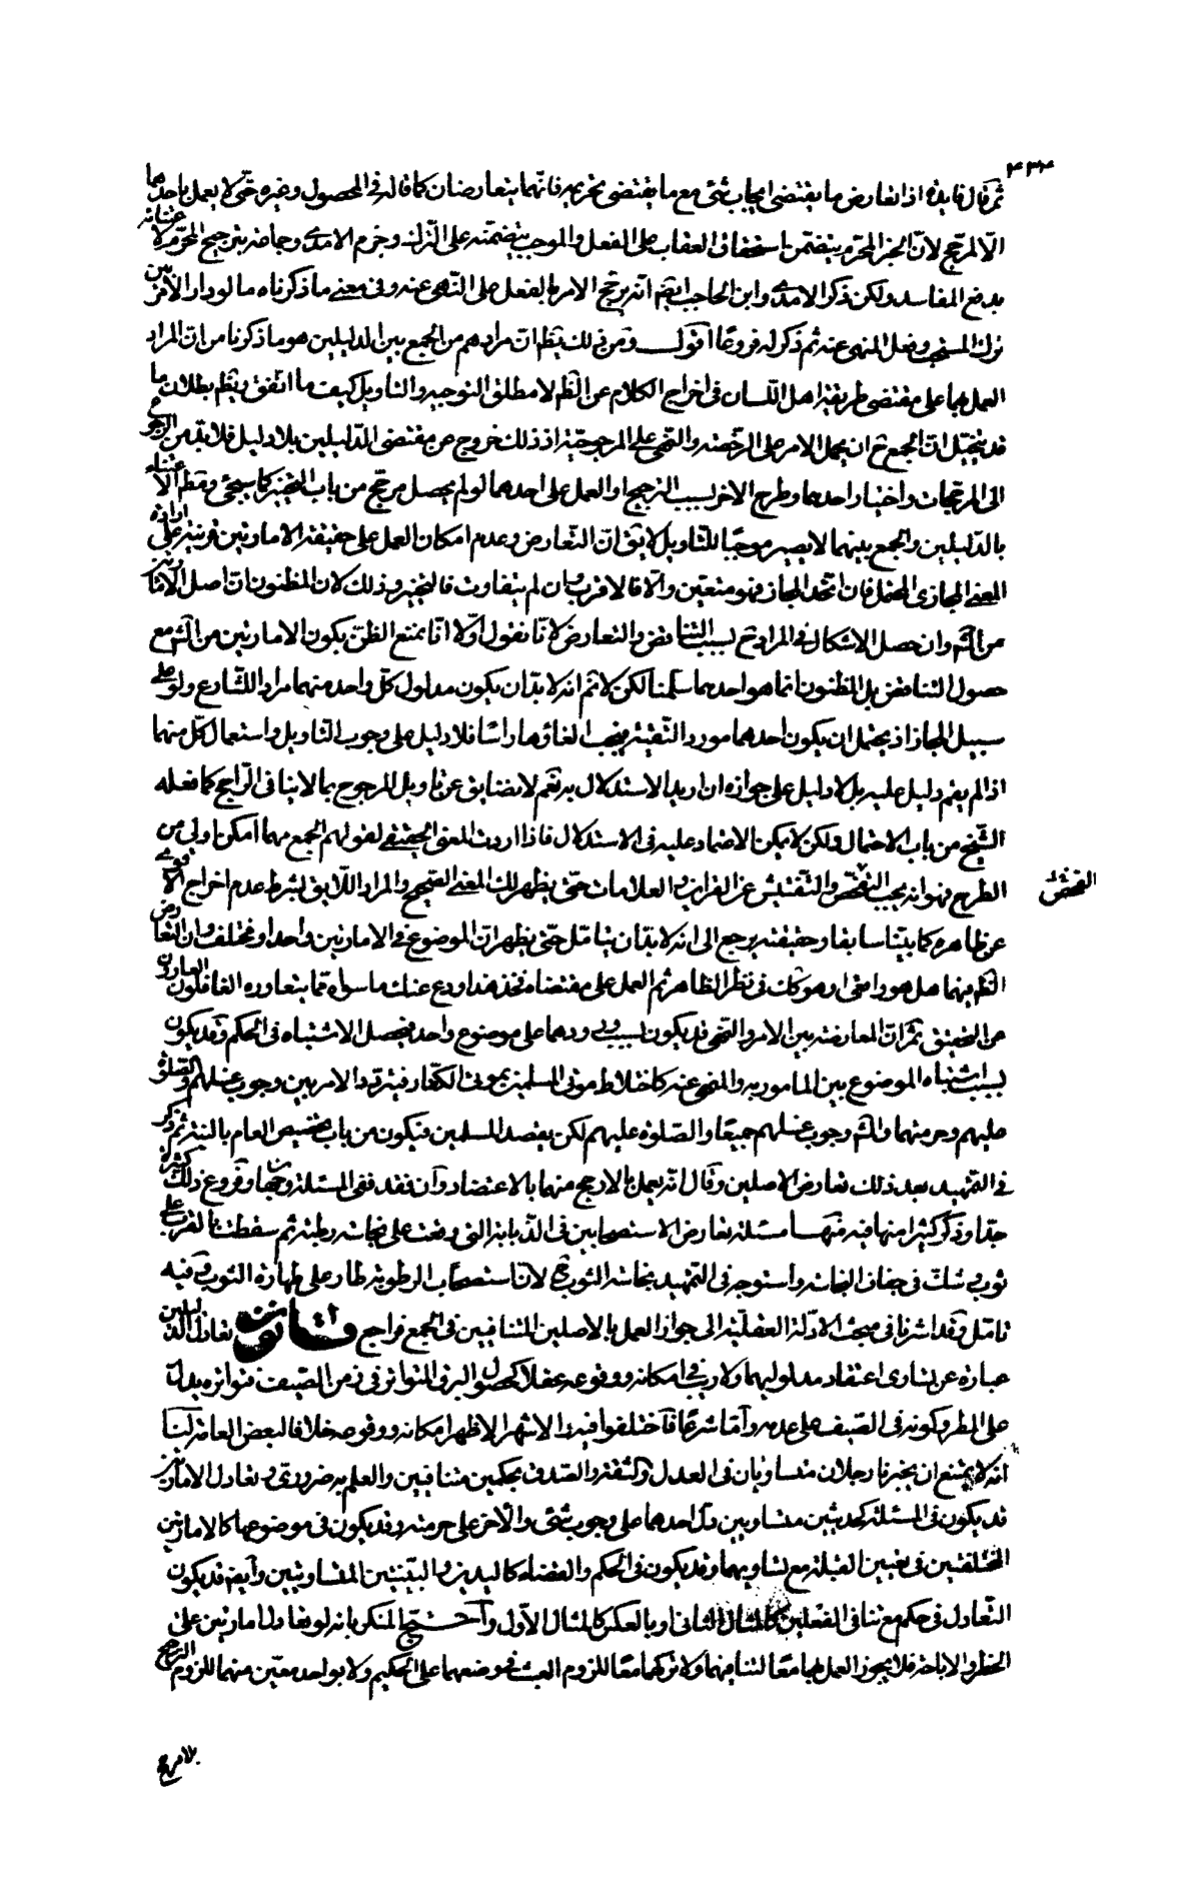 ٤٣٤
ثم قال فايدة اذا تعارض ما يقتضى ايجاب شئ مع ما يقتضى تحريمه فانهما يتعارضان كما قاله في المحصول وغيره حتى لا يعمل باحدهما
الا لمرجح لان الخبر المحرم يتضمن استحقاق العقاب على الفعل والموجب يتضمنه على الترك وجزم الامدى وجماعة بترجيح المحرم لاعتنائه
بدفع المفاسد ولكن ذكر الامدى وابن الحاجب ايضا انه يرجح الامر بالفعل على النهى عنه وفى معنى ما ذكرناه ما لو دار الامر بين
ترك المستحب وفعل المنهى عنه ثم ذكر له فروعا اقول ومن ذلك يظهر ان مرادهم من الجمع بين الدليلين هو ما ذكرنا من ان المراد
العمل بهما على مقتضى طريقة اهل اللسان فى اخراج الكلام عن الظهر لا مطلق التوجيه والتاويل كيف ما اتفق ويظهر بطلان ما
قد يتخيل ان الجمع ح ان يحمل الامر على الرخصة والنهى على المرجوحية اذ ذلك خروج عن مقتضى الدليلين بلا دليل فلا بد من الرجوع
الى المرجحات واختيار احدهما وطرح الاخر بسبب الترجيح او العمل على احدهما لو لم يحصل مرجح من باب التخيير كما سيجئ وقصد الاعتناء
بالدليلين والجمع بينهما لا يصير موجبا للتاويل لا يقال ان التعارض وعدم امكان العمل على حقيقة الامارتين قرينة على ارادة
المعنى المجازى المحتمل فان اتحد المجاز فهو متعين والا فالاقرب وان لم يتفاوت فالتخيير وذلك لان المظنون ان اصل الامارتين
من الشارع وان حصل الاشكال فى المراد ح بسبب التناقض والتعارض لانا نقول اولا انا نمنع الظن بكون الامارتين من الشارع مع
حصول التناقض بل المظنون انما هو احدهما سلمنا لكن لا نسلم انه لا بد ان يكون مدلول كل واحد منهما مراد الشارع ولو على
سبيل المجاز اذ يحتمل ان يكون احدهما مورد التقية فيجب الغاؤها راسا فلا دليل على وجوب التاويل واستعمال كل منهما
اذا لم يقم دليل عليه بل لا دليل على جوازه ان اريد الاستدلال به نعم لا نضايق عن تاويل المرجوح بما لا ينافى الراجح كما فعله
الشيخ من باب الاحتمال ولكن لا يمكن الاعتماد عليه فى الاستدلال فاذا اردت المعنى الحقيقى لقولهم الجمع مهما امكن اولى من
الطرح فهو انه يجب التفحص والتفتيش عن القراين والعلامات حتى يظهر لك المعنى الصحيح والمراد اللايق بشرط عدم اخراج الاقوى
الفحص
عن ظاهره كما بينا سابقا وحقيقته يرجع الى انه لا بد ان يتامل حتى يظهر ان الموضوع فى الامارتين واحد او مختلف وان التعارض
بينهما هل هو واقعى او هو كان فى نظر الظاهر ثم العمل على مقتضاه فخذ هذا ودع عنك ما سواه مما يتعاوره الغافلون العارون
عن التحقيق ثم ان المعارضة بين الامر والنهى قد يكون بسبب ورودهما على موضوع واحد فيحصل الاشتباه فى الحكم وقد يكون
بسبب اشتباه الموضوع بين المامور به والمنهى عنه كاختلاط موتى المسلمين بموتى الكفار فيتردد الامر بين وجوب غسلهم والصلوة
عليهم وحرمتهما والشهر وجوب غسلهم جميعا والصلوة عليهم لكن بقصد المسلمين فيكون من باب تخصيص العام بالنية ثم ذكر
فى التمهيد بعد ذلك تعارض الاصلين وقال انه يعمل بالارجح منهما بالاعتضاد وان فقد ففى المسئلة وجهان وفروع ذلك كثيرة
جدا وذكر كثيرا منها فيه فمنها مسئلة تعارض الاستصحابين فى الذبابة التى وقعت على نجاسة رطبة ثم سقطت بالقرب على
ثوب وشك فى جفاف النجاسة واستوجه فى التمهيد نجاسة الثوب لان استصحاب الرطوبة طار على طهارة الثوب وفيه
تامل وقد اشرنا فى مبحث الادلة العقلية الى جواز العمل بالاصلين المتنافيين فى الجمع فراجع قانون تعادل الدليلين
عبارة عن تساوى اعتقاد مدلوليهما ولا ريب فى امكانه ووقوعه عقلا كحصول البرق المتواتر فى زمن الصيف فتواتره يدل
على المطر وكونه فى الصيف على عدمه واما شرعا فاختلفوا فيه الاشهر الاظهر امكانه ووقوعه خلافا لبعض العامة لنا
انه لا يمتنع ان يخبرنا رجلان متساويان فى العدل والثقة والصدق بحكمين متنافيين والعلم به ضرورى وتعادل الامارتين
قد يكون فى المسئلة كحديثين متساويين دل احدهما على وجوب شئ والاخر على حرمته وقد يكون فى موضوعها كالامارتين
المختلفتين فى تعيين القبلة مع تساويهما وقد يكون فى الحكم والقضاء كاليدين والبينتين المتساويتين وايضا قد يكون
التعادل فى حكم مع تنافى الفعلين كالمثال الثانى او بالعكس كالمثال الاول واحتج المنكر بانه لو تعادل امارتين على
الحظر والاباحة فلا يجوز العمل بهما معا لتنافيهما ولا تركهما معا للزوم العبث فى وضعهما على الحكيم ولا بواحد معين منهما للزوم الترجيح
بلا مرجح